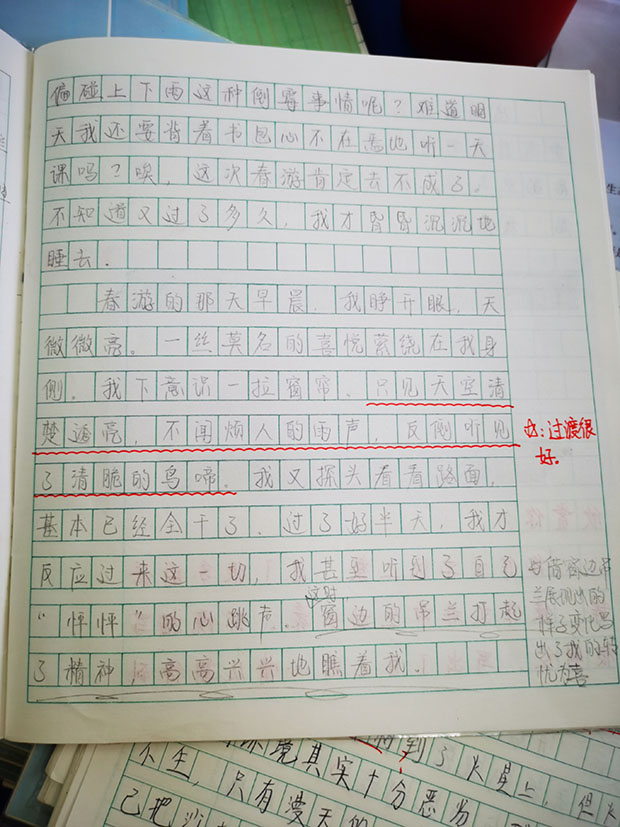 偏碰上下雨这种倒霉事情呢？难道明
天我还要背着书包心不在焉地听一天
课吗？唉，这次春游肯定去不成了。
不知道又过了多久，我才昏昏沉沉地
睡去．
春游的那天早晨，我睁开眼，天
微微亮。一丝莫名的喜悦萦绕在我身
侧。我下意识一拉窗帘，只见天空清
楚透亮，不闻烦人的雨声，反倒听见
了清脆的鸟啼。我又探头看看路面，
基本已经全干了．过了好半天，我才
反应过来这一切，我甚至听到了自己
“怦怦”的心跳声．这时窗边的吊兰打起
了精神，高高兴兴地瞧着我．
过渡很
好．
借窗边吊
兰展现出的
样子变化写
出了我的转
忧为喜
环境其实十分恶劣
到了火星上，但火
不生，只有漫天的
己把